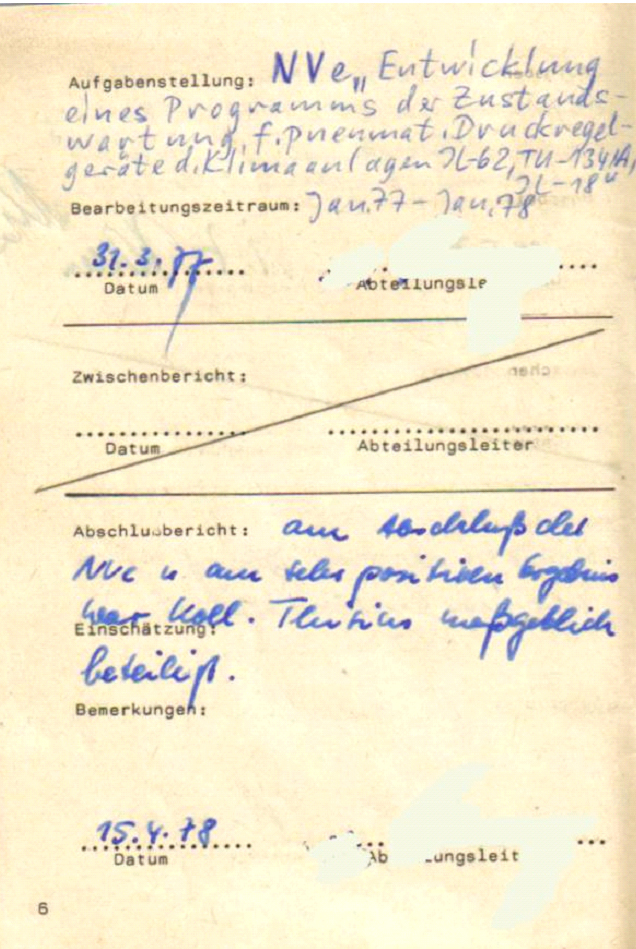 Aufgabenstellung: NVe „Entwicklung
eines Programms der Zustands-
wartung f. pneumat. Druckregel-
geräte d. Klimaanlagen IL-62, TU-134/A,
IL-18"
Bearbeitungszeitraum: Jan. 77 - Jan. 78
31.3.77
Datum Abteilungsle
Zwischenbericht:
Datum Abteilungsleiter
Abschlußbericht: am Abschluß der
NVe u. am sehr positiven Ergebnis
war Koll. maßgeblich
Einschätzung:
beteiligt.
Bemerkungen:
15.4.78
Datum Ab ungsleit
6